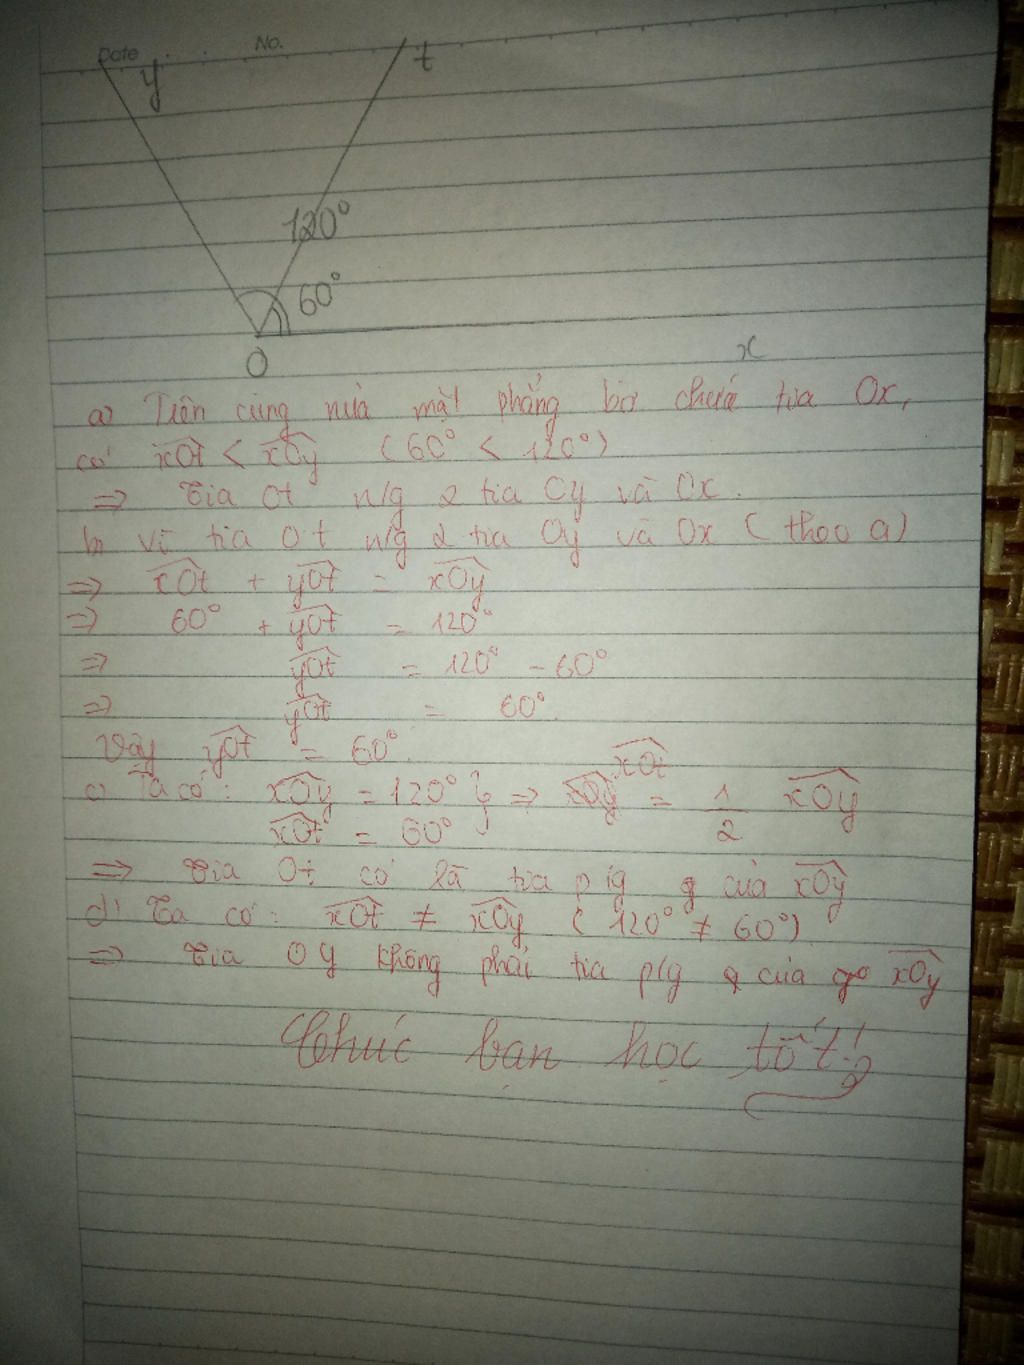 Date No.
y t
120°
60°
O x
a) Trên cùng nửa mặt phẳng bờ chứa tia Ox,
có xOt < xOy (60° < 120°)
=> tia Ot n/g 2 tia Oy và Ox.
b) vì tia Ot n/g 2 tia Oy và Ox (theo a)
=> xOt + yOt = xOy
=> 60° + yOt = 120°
=> yOt = 120° - 60°
=> yOt = 60°.
Vậy yOt = 60°.
xOt
c) Ta có: xOy = 120° } => xOy = 1/2 xOy
xOt = 60°
=> tia Ot có là tia p/g g của xOy
d) Ta có: xOt ≠ xOy (120° ≠ 60°)
=> tia Oy không phải tia p/g g của go xOy
Chúc bạn học tốt!